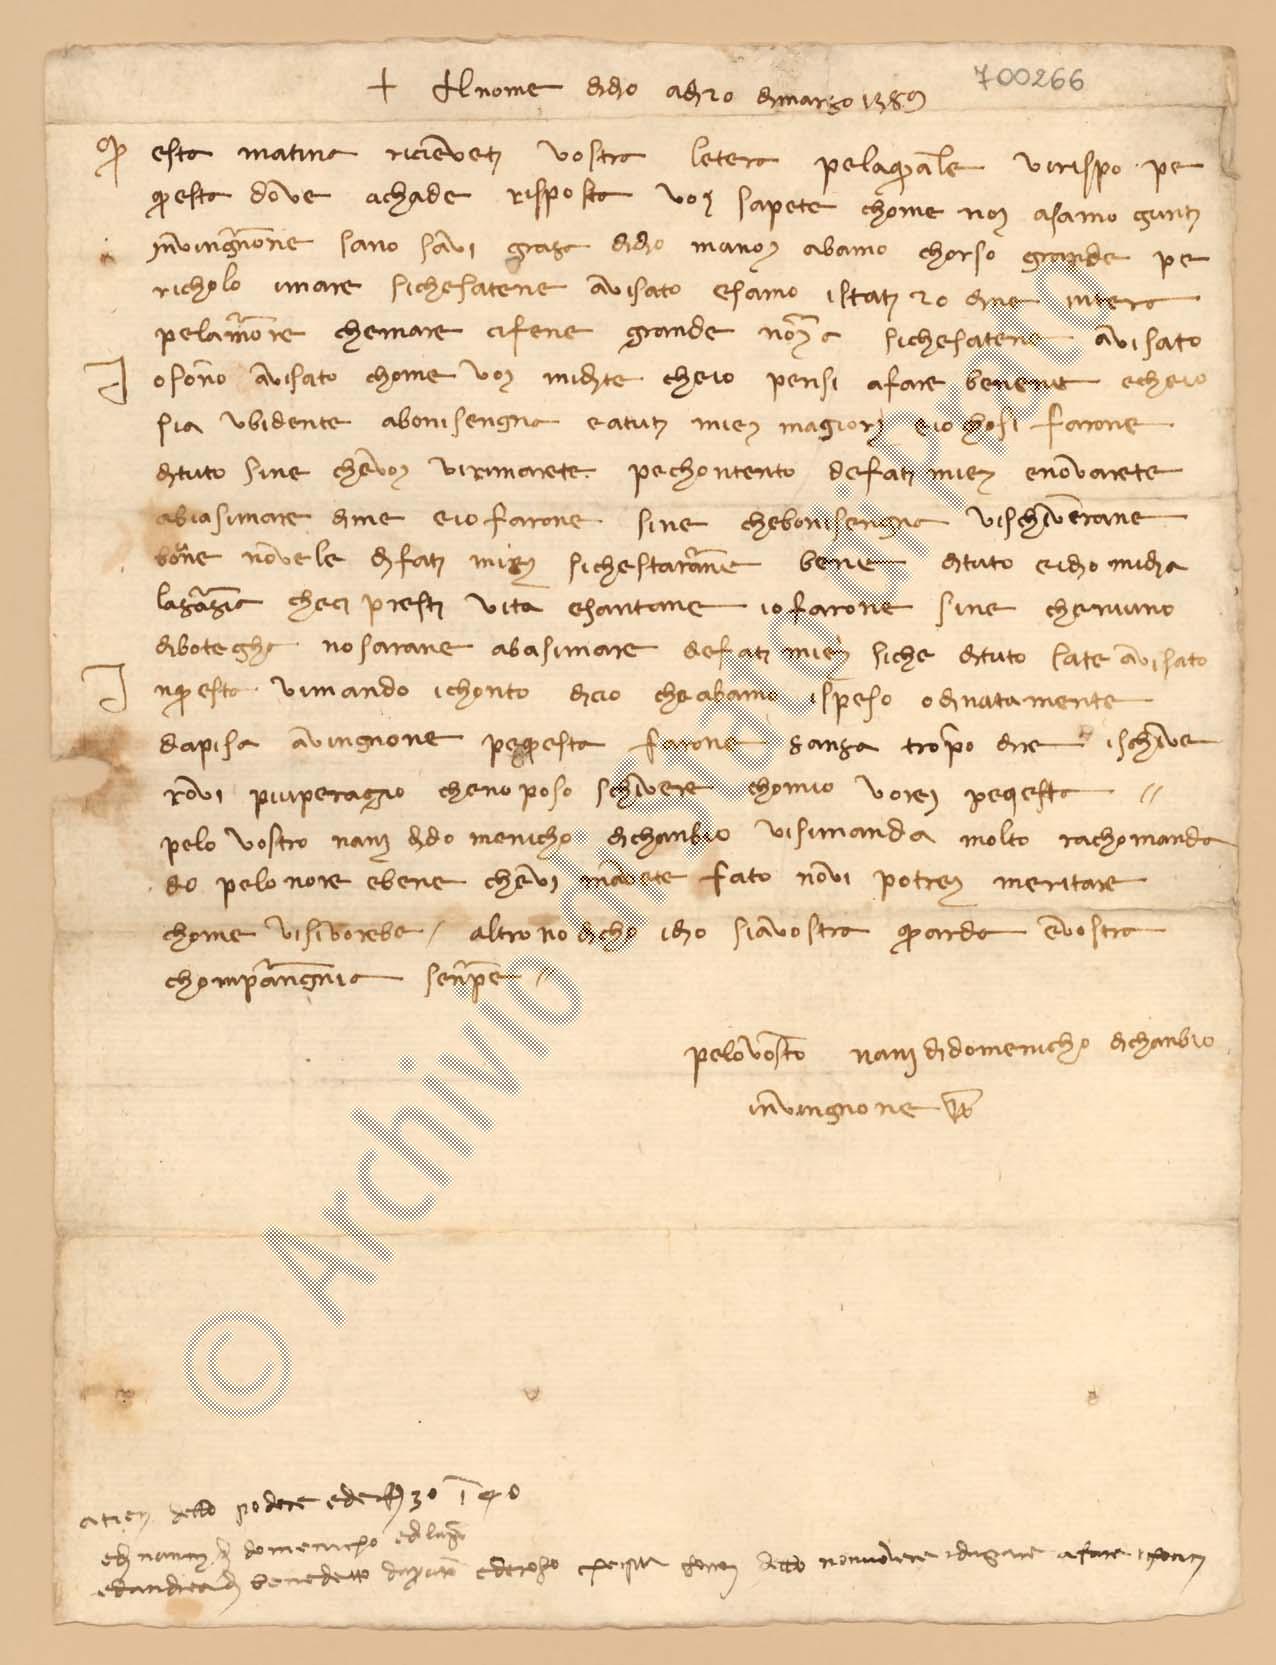 + Al nome didio adi 20 dimarzo 1389
700266
Questa matina ricieveti vostra letera pelaquale virispo pe
questa dove achade risposta voi sapete chome noi asamo gunti
invingnone sano salvi graza didio manoi abamo chorso grande pe
richolo imare sichesatene avisato esamo istati 20 dine intera
pelamore chemare cifene grande noiza sichesatene avisato
osono avisato chome voi midite cheio pensi afare bene echeio
sia ubidente abonisengna eatuti miei magiori eiochosi farone
dituto sine chevoi virimarete pechontento defati miei enovarete
abiasimare dime eiofarone sine chebonisengna vischiverane
bone novele difati miei sichestarane bene dituto eidio midia
lagrazia checi presti vita esantane iofarone sine cheniuno
diboteghe nosarane abasimare defati miei siche dituto sate avisato
inquesta vimando ichonto dicio cheabamo ispeso odinatamente
dapisa avingnione pequesta farone sanza tropo dire ischive
rovi piuperagio chenoposo schivere chomio vorei pequesta //
pelo vostro nani didomenicho dichanbio visimanda molto rachomanda
do pelonore ebene chevi mavete fato novi potrei meritare
chome visivorebe / altro nodicho idio siavostra guarda evostra
chompangnia senpre //
pelovostro nani didomenicho dichanbio
invingnone
detto podere 30
nanni di domenicho
edandrea di benedetto afare
© Archivio di Stato di Prato